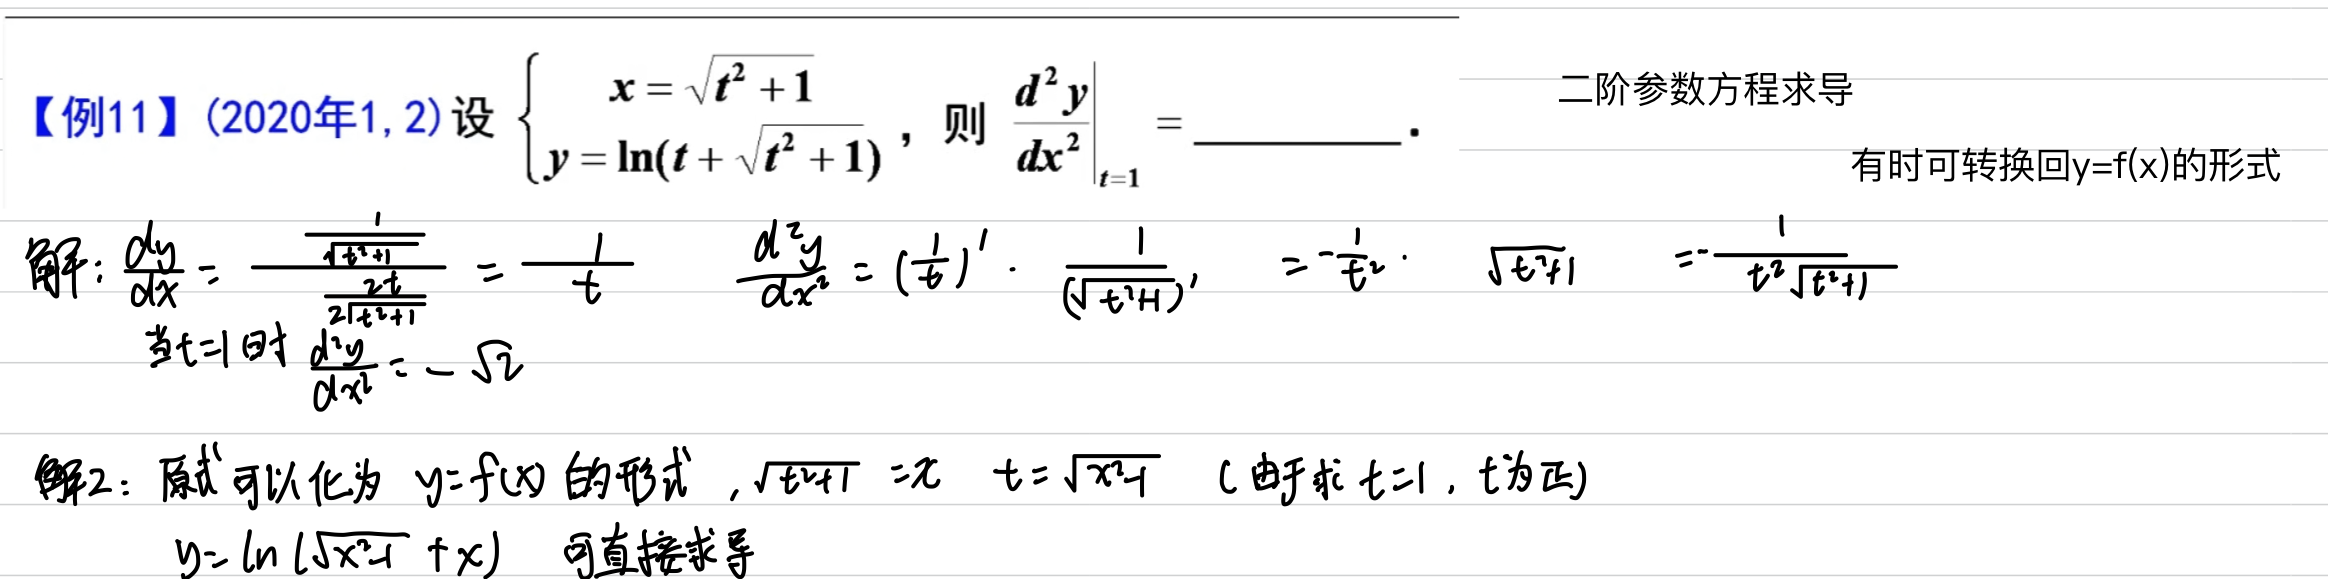 【例11】(2020年1,2)设 { x = √(t² + 1) , y = ln(t + √(t² + 1)) , 则 d²y/dx² |t=1 = ________.
二阶参数方程求导
有时可转换回y=f(x)的形式
解: dy/dx = (1/√(t²+1))/(2t/(2√(t²+1))) = 1/t d²y/dx² = (1/t)' · 1/(√(t²+1))' = -1/t² · √(t²+1) = -1/(t²√(t²+1))
当t=1时 d²y/dx² = -√2
解2: 原式可以化为 y=f(x) 的形式 , √(t²+1) = x t = √(x²-1) (由于求 t=1, t为正)
y = ln(√(x²-1) + x) 可直接求导